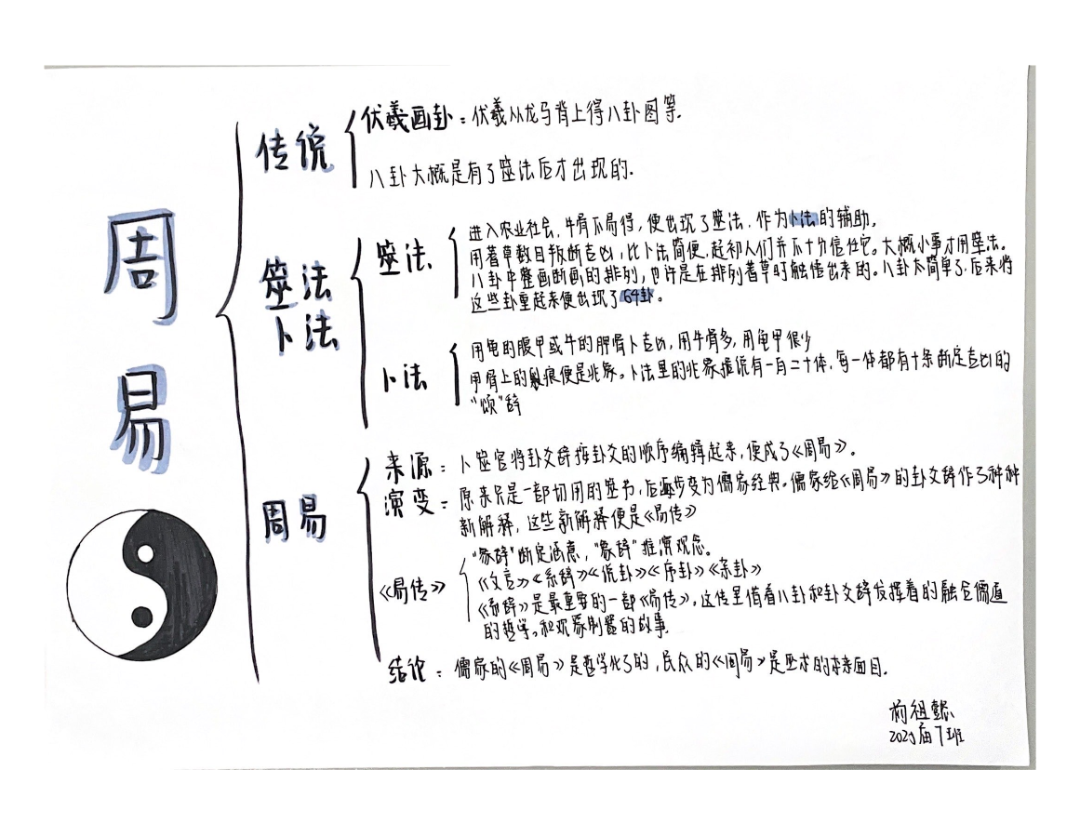 周易
传说
伏羲画卦：伏羲从龙马背上得八卦图等.
八卦大概是有了筮法后才出现的.
筮法
卜法
筮法.
进入农业社会,牛骨不易得,便出现了筮法.作为卜法的辅助。
用蓍草数目占断吉凶,比卜法简便.起初人们并不十分信任它。大概小事才用筮法。
八卦中整画断画的排列,也许是在排列蓍草时触悟出来的。八卦太简单了.后来将
这些卦重起来便出现了64卦。
卜法
用龟的腹甲或牛的胛骨卜吉凶,用牛骨多,用龟甲很少
甲骨上的裂痕便是兆象。卜法里的兆象据说有一百二十体.每一体都有十条断定吉凶的
“颂”辞
周易
来源：卜筮官将卦爻辞按卦爻的顺序编辑起来,便成了《周易》。
演变：原来只是一部切用的筮书,后逐步变为儒家经典。儒家给《周易》的卦爻辞作了种种
新解释,这些新解释便是《易传》
《易传》
断定涵意,推演观念。
《文言》《系辞》《说卦》《序卦》《杂卦》
《系辞》是最重要的一部《易传》,这传里借着八卦和卦爻辞发挥着的融合儒道
的哲学.和观象制器的故事.
结论：儒家的《周易》是哲学化了的,民众的《周易》是巫术的本来面目.
7班